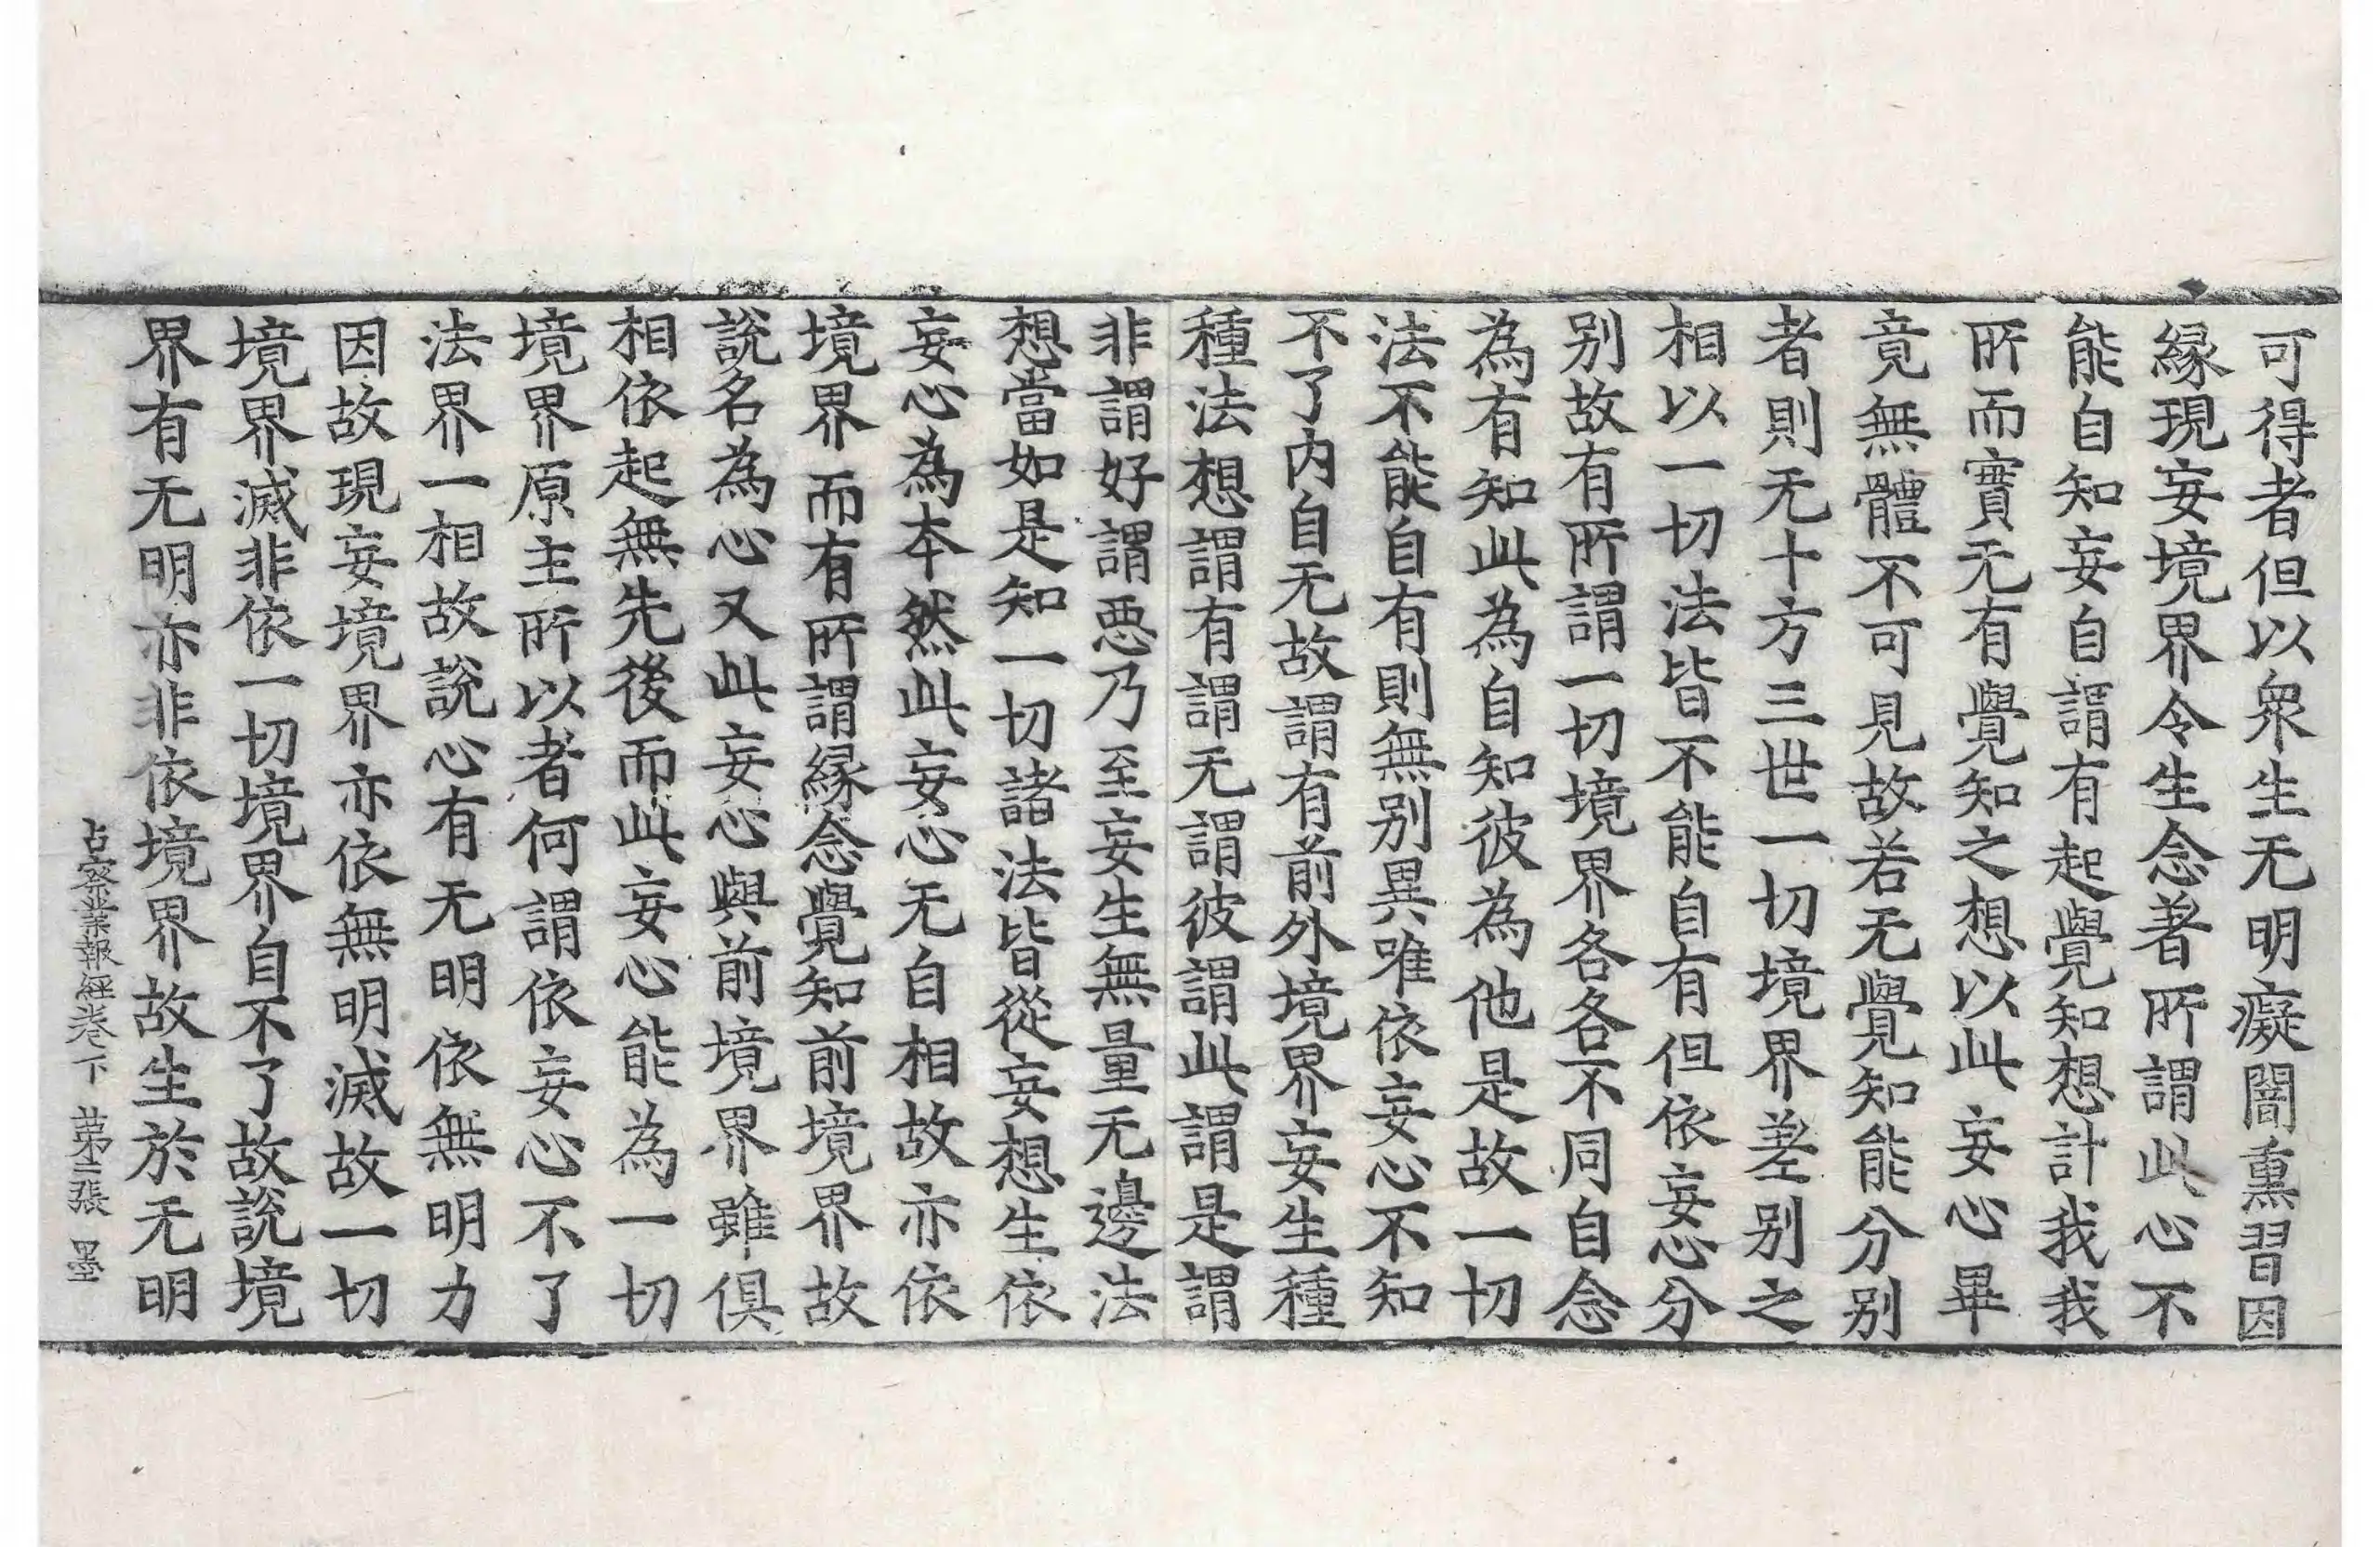 可得者但以衆生无明癡闇熏習因
縁現妄境界令生念著所謂此心不
能自知妄自謂有起覺知想計我我
所而實无有覺知之想以此妄心畢
竟無體不可見故若无覺知能分別
者則无十方三世一切境界差別之
相以一切法皆不能自有但依妄心分
別故有所謂一切境界各各不同自念
為有知此為自知彼為他是故一切
法不能自有則無別異唯依妄心不知
不了內自无故謂有前外境界妄生種
種法想謂有謂无謂彼謂此謂是謂
非謂好謂惡乃至妄生無量无邊法
想當如是知一切諸法皆從妄想生依
妄心為本然此妄心无自相故亦依
境界而有所謂縁念覺知前境界故
說名為心又此妄心與前境界雖俱
相依起無先後而此妄心能為一切
境界原主所以者何謂依妄心不了
法界一相故說心有无明依無明力
因故現妄境界亦依無明滅故一切
境界滅非依一切境界自不了故說境
界有无明亦非依境界故生於无明
占察業報經卷下 苐三張 墨